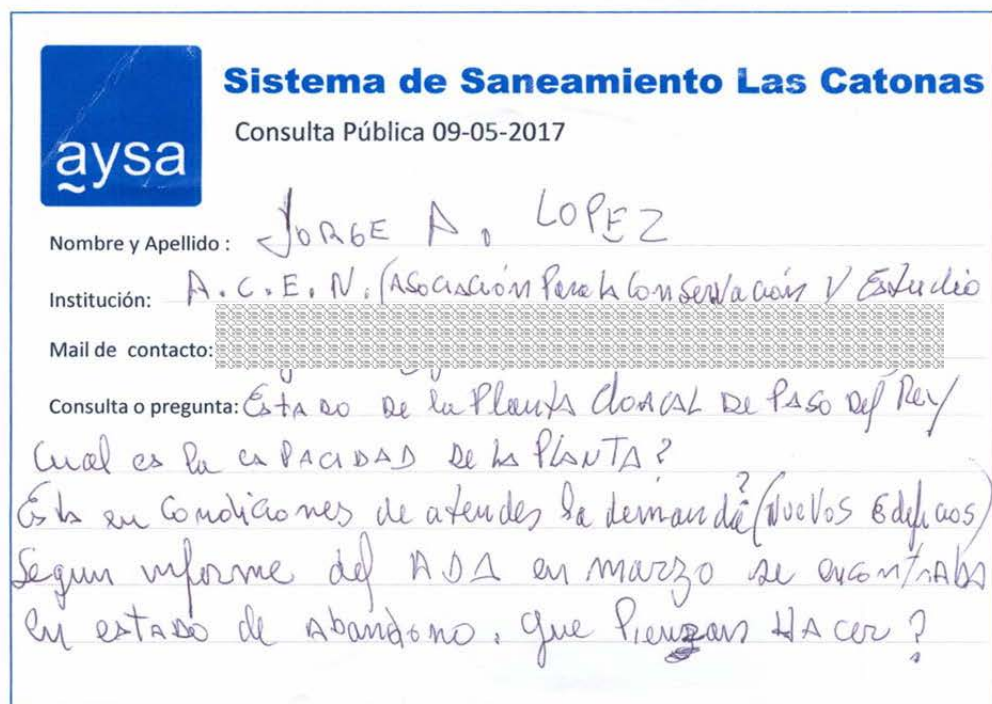 aysa
Sistema de Saneamiento Las Catonas
Consulta Pública 09-05-2017
Nombre y Apellido : JORGE A. LOPEZ
Institución: A.C.E.N. (Asociación Para la Conservación Y Estudio
Mail de contacto:
Consulta o pregunta: Estado de la Planta Cloacal de Paso del Rey
Cual es la capacidad de la Planta?
Esta en Condiciones de atender la demanda? (Nuevos Edificios)
Segun informe del ADA en marzo se encontraba
en estado de abandono. que Pienzan Hacer?